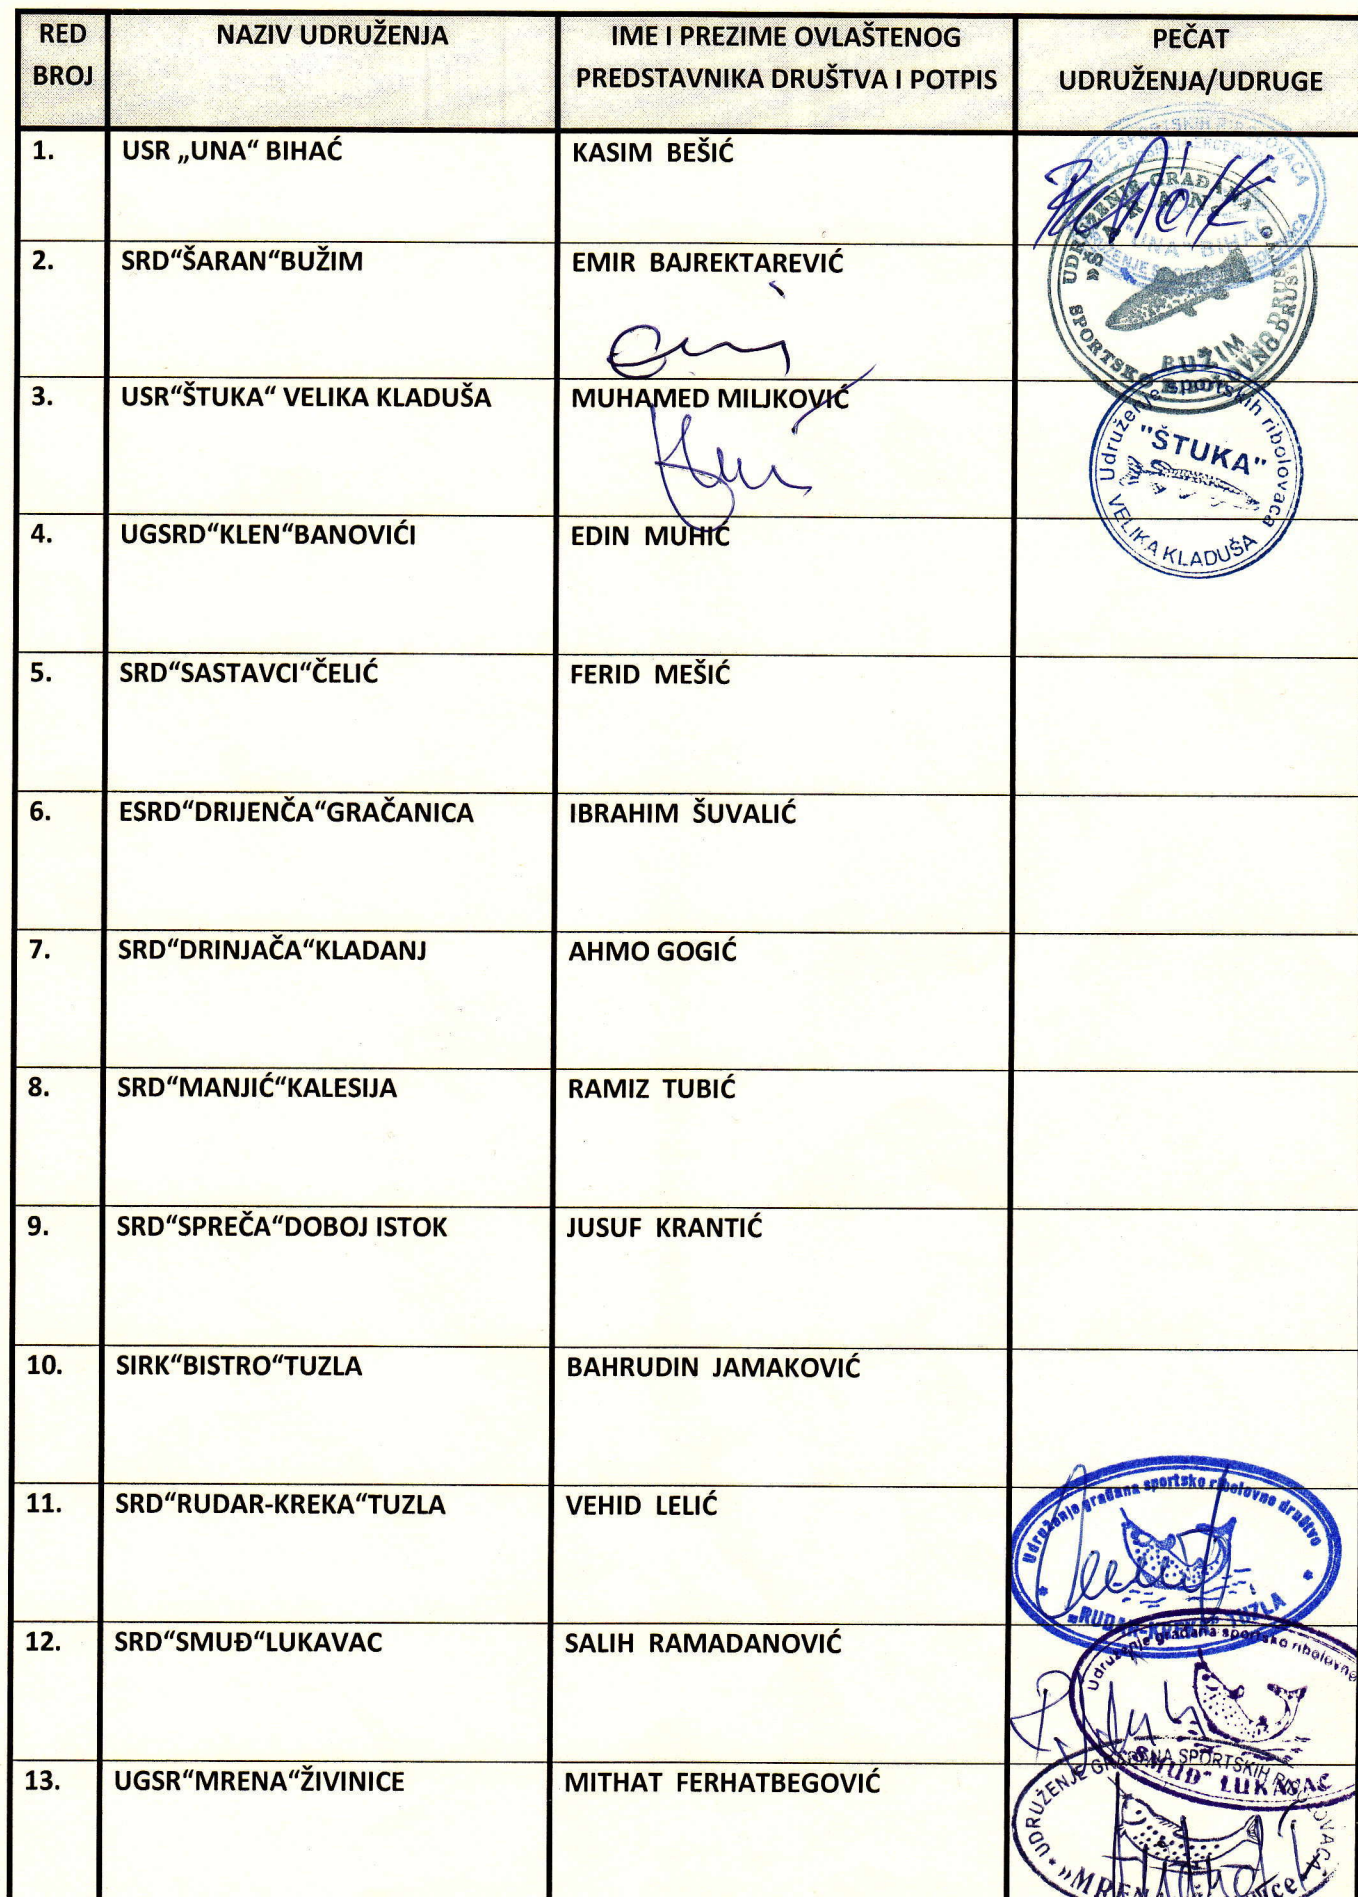 RED BROJ NAZIV UDRUŽENJA IME I PREZIME OVLAŠTENOG PREDSTAVNIKA DRUŠTVA I POTPIS PEČAT UDRUŽENJA/UDRUGE
1. USR „UNA“ BIHAĆ KASIM BEŠIĆ
SAVEZ SPORTSKIH RIBOLOVACA
"UNA" BIHAĆ
2. SRD“ŠARAN“BUŽIM EMIR BAJREKTAREVIĆ
UDRUŽENJE GRAĐANA
SPORTSKO RIBOLOVNO DRUŠTVO
BUŽIM
3. USR“ŠTUKA“ VELIKA KLADUŠA MUHAMED MILJKOVIĆ
Udruženje sportskih ribolovaca
"ŠTUKA"
VELIKA KLADUŠA
4. UGSRD“KLEN“BANOVIĆI EDIN MUHIĆ
5. SRD“SASTAVCI“ČELIĆ FERID MEŠIĆ
6. ESRD“DRIJENČA“GRAČANICA IBRAHIM ŠUVALIĆ
7. SRD“DRINJAČA“KLADANJ AHMO GOGIĆ
8. SRD“MANJIĆ“KALESIJA RAMIZ TUBIĆ
9. SRD“SPREČA“DOBOJ ISTOK JUSUF KRANTIĆ
10. SIRK“BISTRO“TUZLA BAHRUDIN JAMAKOVIĆ
11. SRD“RUDAR-KREKA“TUZLA VEHID LELIĆ
Udruženje građana sportsko ribolovno društvo
„RUDAR-KREKA“ TUZLA
12. SRD“SMUĐ“LUKAVAC SALIH RAMADANOVIĆ
Udruženje građana sportsko ribolovno
"SMUĐ" LUKAVAC
13. UGSR“MRENA“ŽIVINICE MITHAT FERHATBEGOVIĆ
UDRUŽENJE GRAĐANA SPORTSKIH RIBOLOVACA
»MRENA